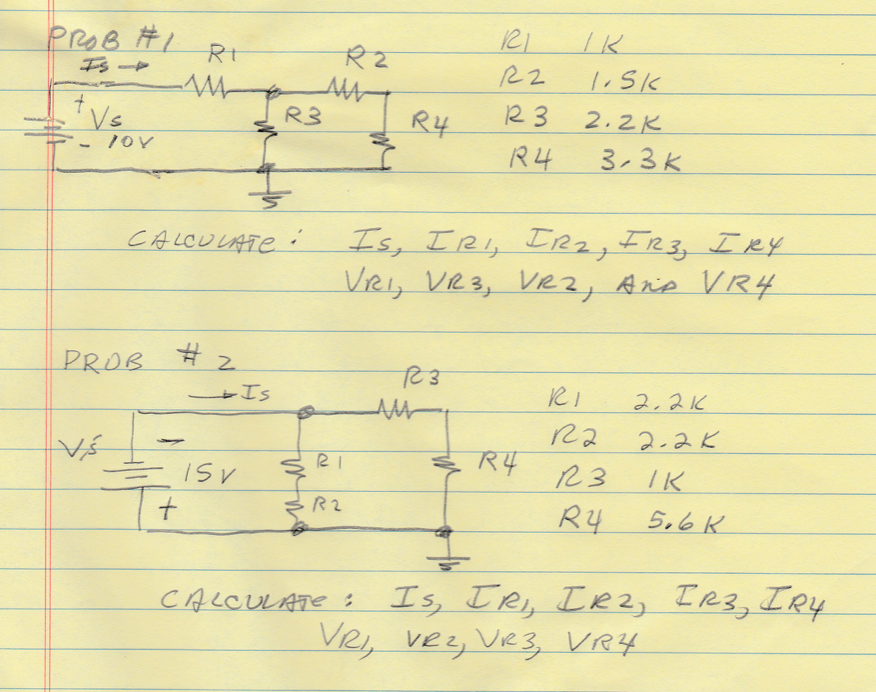 PROB #1
Is → R1 R2
+ Vs R3 R4
- 10V
R1 1K
R2 1.5K
R3 2.2K
R4 3.3K
CALCULATE: Is, IR1, IR2, IR3, IR4
VR1, VR3, VR2, AND VR4
PROB #2
→ Is R3
Vs - 15V + R1 R4
R2
R1 2.2K
R2 2.2K
R3 1K
R4 5.6K
CALCULATE: Is, IR1, IR2, IR3, IR4
VR1, VR2, VR3, VR4